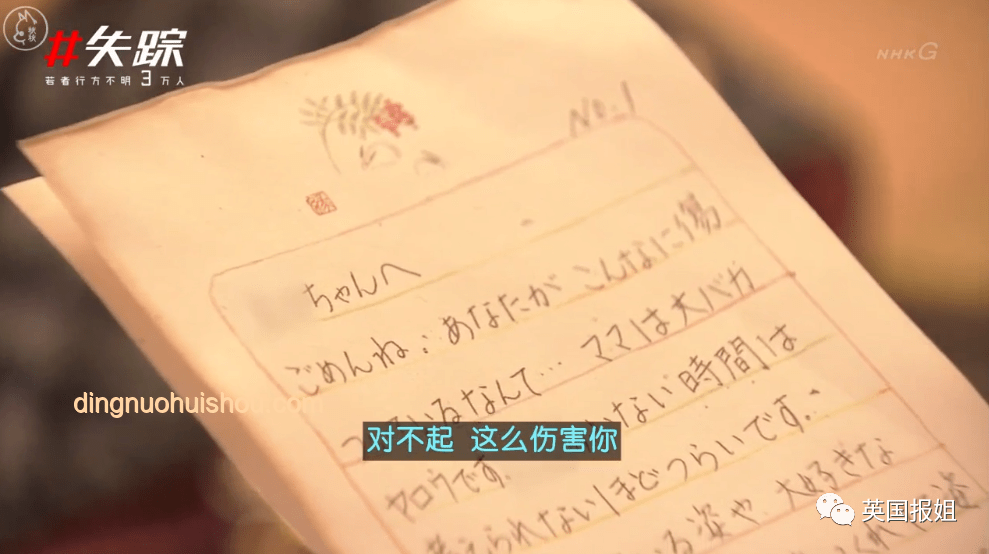 #失踪
若者行方不明3万人
NHK G
No.1
ちゃんへ
ごめんね：あなたがこんなに傷
ついているなんて… ママは大バカ
ヤロウです。 ない時間は
考えられないほどつらいです。
いる姿や、大好きな
姿
dingnuohuishou.com
对不起 这么伤害你
英国报姐